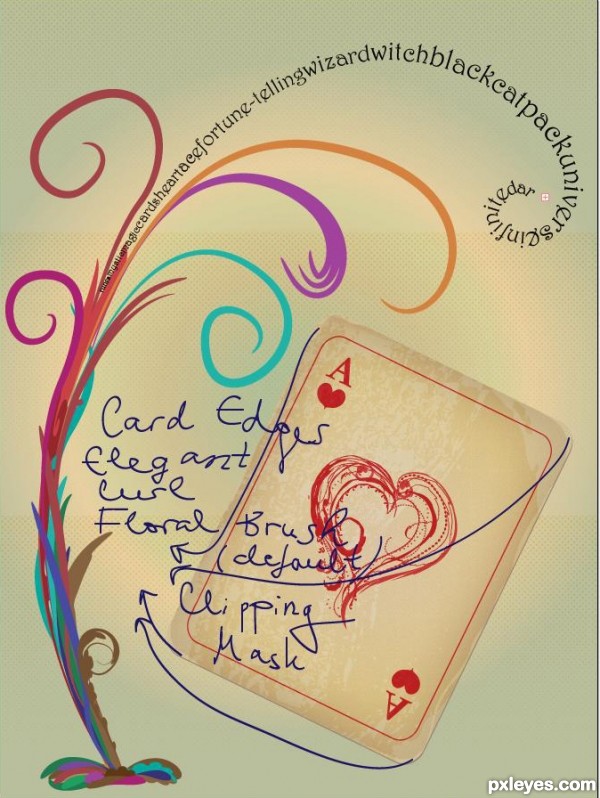 magiccardsheartacefortune-tellingwizardwitchblackcatpackuniverseinfinitedar
A
Card Edges
Elegant
Curl
Floral Brush
(default)
Clipping
Mask
A
pxleyes.com